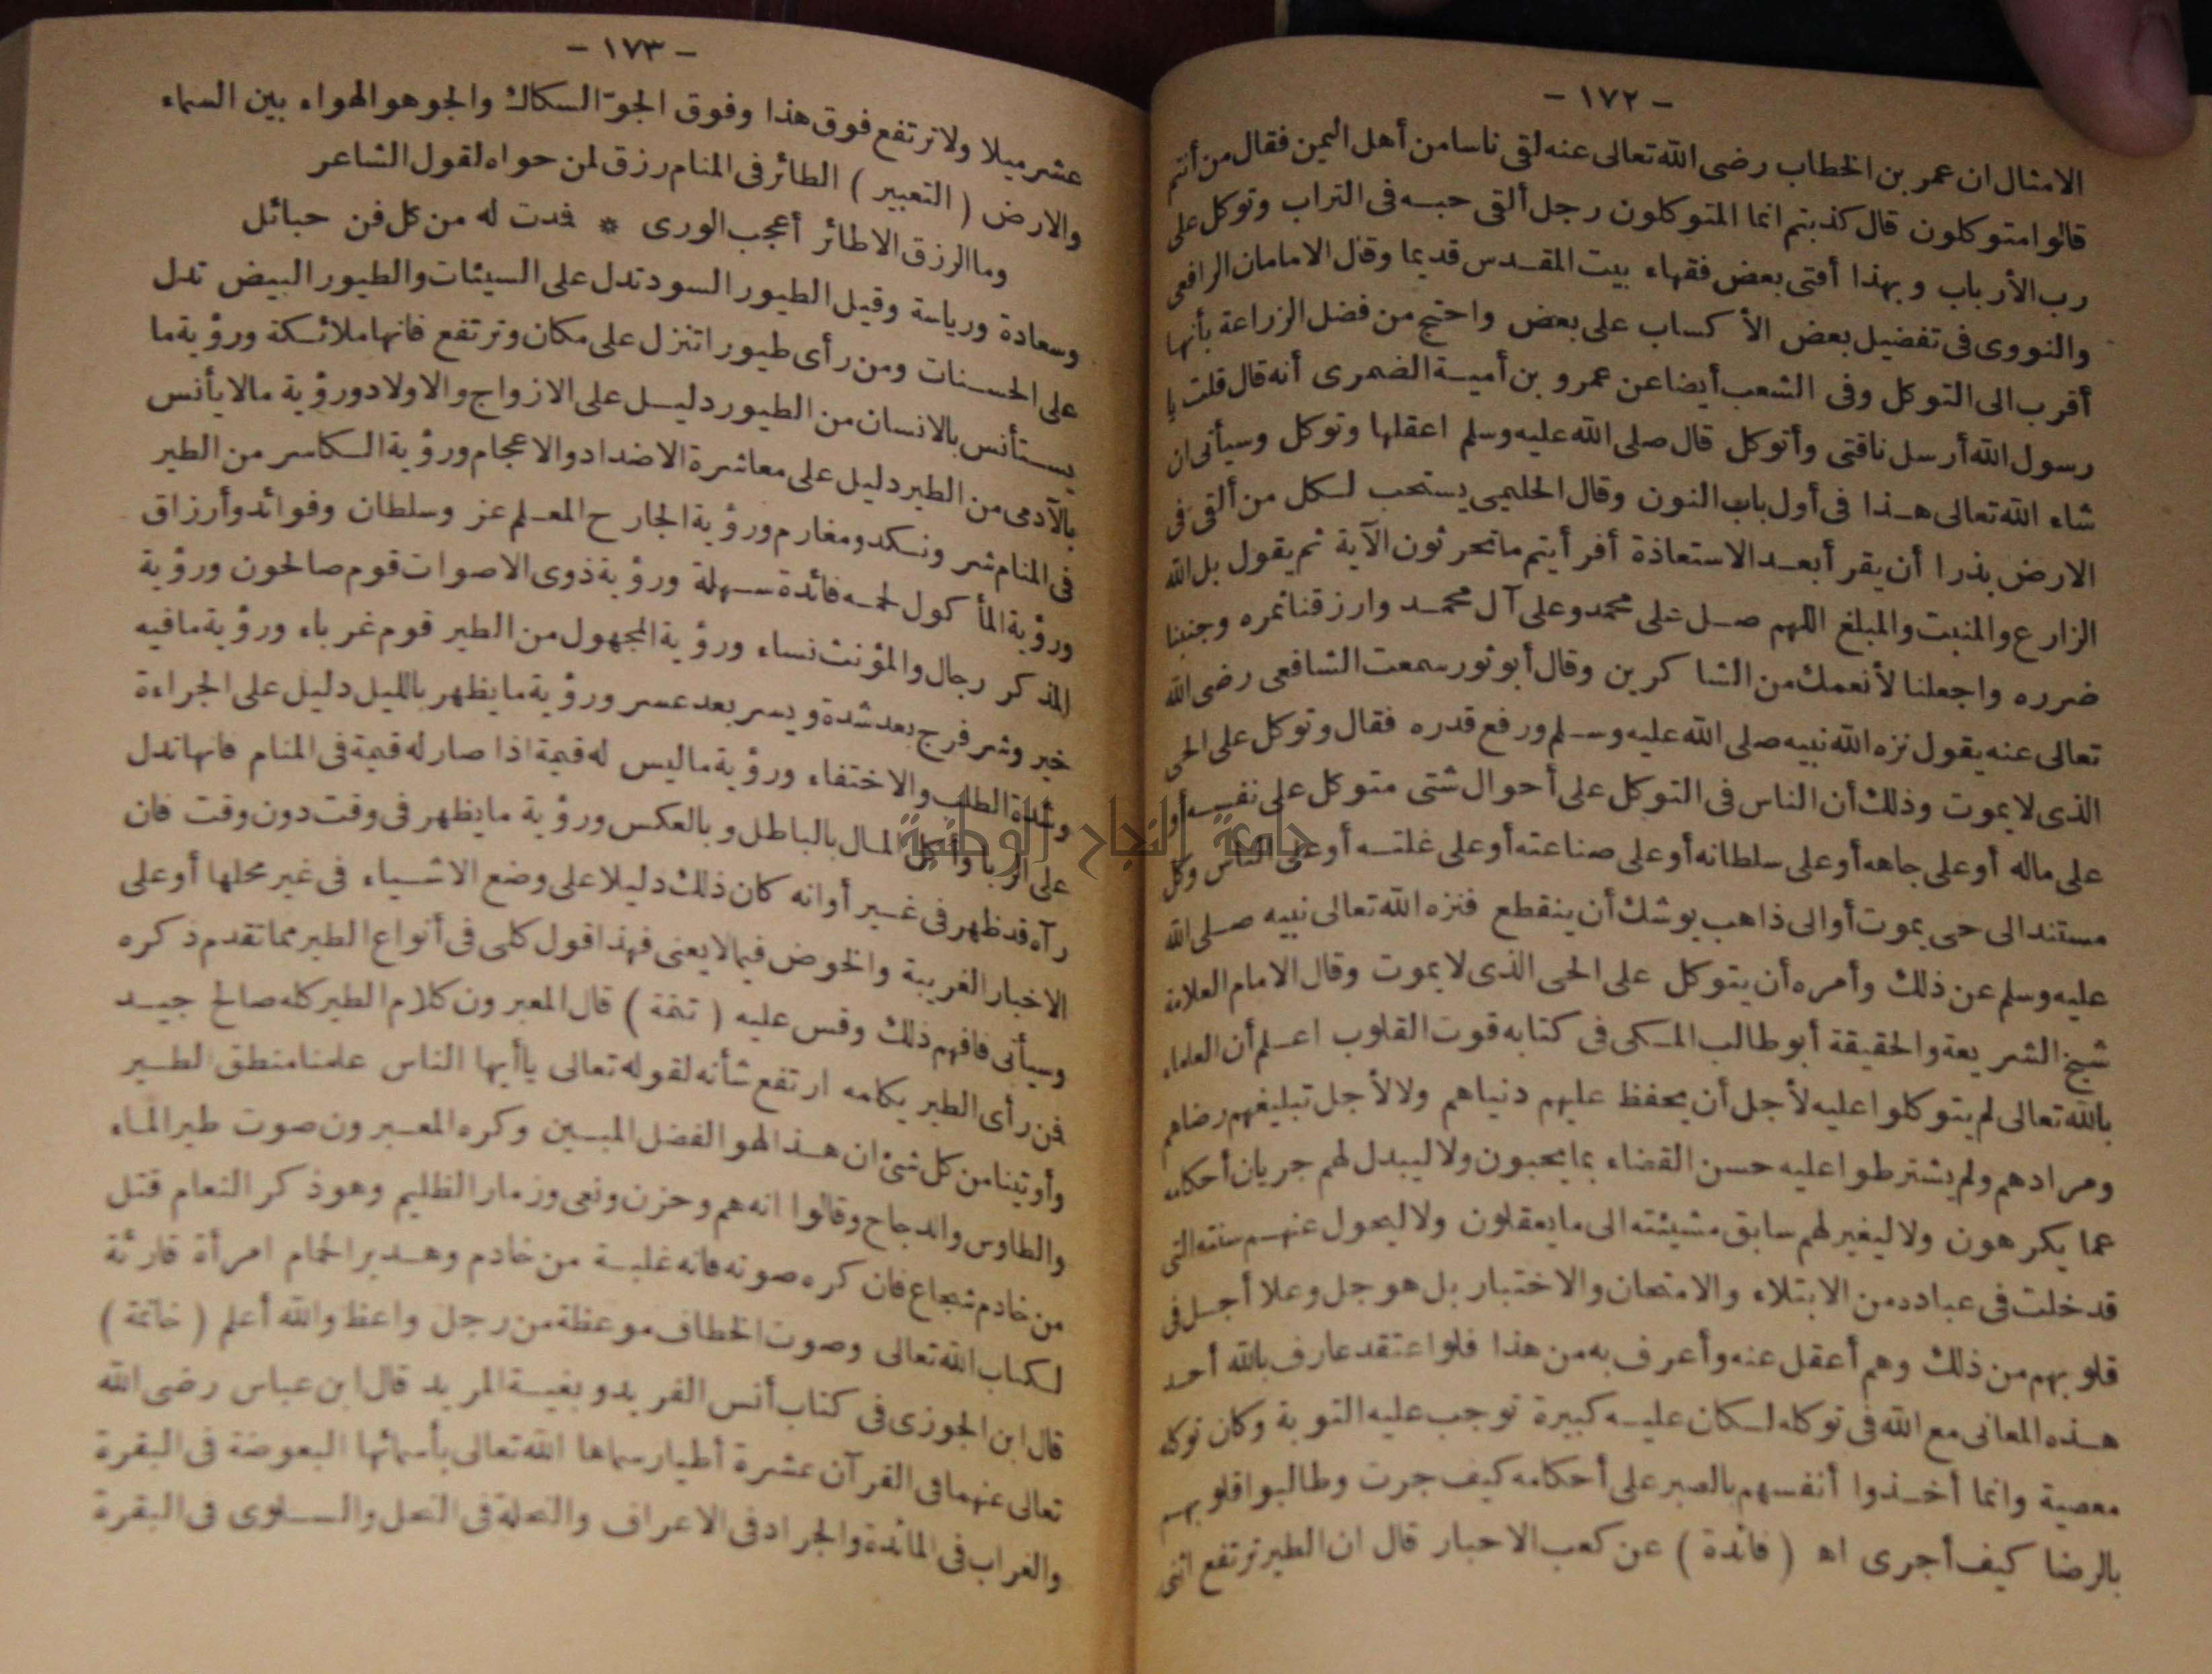 – ١٧٢ –
الامثال ان عمر بن الخطاب رضى الله تعالى عنه لقى ناسا من أهل اليمن فقال من أنتم
قالوا متوكلون قال كذبتم انما المتوكلون رجل ألقى حبه فى التراب وتوكل على
رب الأرباب وبهذا أفتى بعض فقهاء بيت المقدس قديما وقال الامامان الرافعى
والنووى فى تفضيل بعض الأكساب على بعض واحتج من فضل الزراعة بأنها
أقرب الى التوكل وفى الشعب أيضا عن عمرو بن أمية الضمرى أنه قال قلت يا
رسول الله أرسل ناقتى وأتوكل قال صلى الله عليه وسلم اعقلها وتوكل وسيأتى ان
شاء الله تعالى هذا فى أول باب النون وقال الحليمى يستحب لكل من ألقى فى
الارض بذرا أن يقرأ بعد الاستعاذة أفرأيتم ما تحرثون الآية ثم يقول بل الله
الزارع والمنبت والمبلغ اللهم صل على محمد وعلى آل محمد وارزقنا ثمره وجنبنا
ضرره واجعلنا لأنعمك من الشاكرين وقال أبو ثور سمعت الشافعى رضى الله
تعالى عنه يقول نزه الله نبيه صلى الله عليه وسلم ورفع قدره فقال وتوكل على الحى
الذى لا يموت وذلك أن الناس فى التوكل على أحوال شتى متوكل على نفسه أو
على ماله أو على جاهه أو على سلطانه أو على صناعته أو على غلته أو على الناس وكل
مستند الى حى يموت أو الى ذاهب يوشك أن ينقطع فنزه الله تعالى نبيه صلى الله
عليه وسلم عن ذلك وأمره أن يتوكل على الحى الذى لا يموت وقال الامام العلامة
شيخ الشريعة والحقيقة أبو طالب المكى فى كتابه قوت القلوب اعلم أن العلماء
بالله تعالى لم يتوكلوا عليه لأجل أن يحفظ عليهم دنياهم ولا لأجل تبليغهم رضاهم
ومرادهم ولم يشترطوا عليه حسن القضاء بما يحبون ولا ليبدل لهم جريان أحكامه
عما يكرهون ولا ليغير لهم سابق مشيئته الى ما يعقلون ولا ليحول عنهم سنته التى
قد خلت فى عباده من الابتلاء والامتحان والاختبار بل هو جل وعلا أجل فى
قلوبهم من ذلك وهم أعقل عنه وأعرف به من هذا فلو اعتقد عارف بالله أحد
هذه المعانى مع الله فى توكله لكان عليه كبيرة توجب عليه التوبة وكان توكله
معصية وانما أخذوا أنفسهم بالصبر على أحكامه كيف جرت وطالبوا قلوبهم
بالرضا كيف أجرى اه (فائدة) عن كعب الاحبار قال ان الطير ترتفع اثنى
– ١٧٣ –
عشر ميلا ولا ترتفع فوق هذا وفوق الجوّ السكاك والجو هو الهواء بين السماء
والارض (التعبير) الطائر فى المنام رزق لمن حواه لقول الشاعر
وما الرزق الا طائر أعجب الورى * فدت له من كل فن حبائل
وسعادة ورياسة وقيل الطيور السود تدل على السيئات والطيور البيض تدل
على الحسنات ومن رأى طيورا تنزل على مكان وترتفع فانها ملائكة ورؤية ما
يستأنس بالانسان من الطيور دليل على الازواج والاولاد ورؤية مالا يأنس
بالآدمى من الطير دليل على معاشرة الاضداد والاعجام ورؤية الكاسر من الطير
فى المنام شر ونكد ومغارم ورؤية الجارح المعلم عز وسلطان وفوائد وأرزاق
ورؤية المأكول لحمه فائدة سهلة ورؤية ذوى الاصوات قوم صالحون ورؤية
المذكر رجال والمؤنث نساء ورؤية المجهول من الطير قوم غرباء ورؤية ما فيه
خير وشر فرج بعد شدة ويسر بعد عسر ورؤية ما يظهر بالليل دليل على الجراءة
وشدة الطلب والاختفاء ورؤية ما ليس له قيمة اذا صار له قيمة فى المنام فانها تدل
على الربا وأكل المال بالباطل وبالعكس ورؤية ما يظهر فى وقت دون وقت فان
رآه قد ظهر فى غير أوانه كان ذلك دليلا على وضع الاشياء فى غير محلها أو على
الاخبار الغريبة والخوض فيما لا يعنى فهذا قول كلى فى أنواع الطير مما تقدم ذكره
وسيأتى فافهم ذلك وقس عليه (تتمة) قال المعبرون كلام الطير كله صالح جيد
فمن رأى الطير يكلمه ارتفع شأنه لقوله تعالى يا أيها الناس علمنا منطق الطير
وأوتينا من كل شئ ان هذا لهو الفضل المبين وكره المعبرون صوت طير الماء
والطاوس والدجاح وقالوا انه هم وحزن ونعى وزمار الظليم وهو ذكر النعام قتل
من خادم شجاع فان كره صوته فانه غلبة من خادم وهدير الحمام امرأة قارئة
لكتاب الله تعالى وصوت الخطاف موعظة من رجل واعظ والله أعلم (خاتمة)
قال ابن الجوزى فى كتاب أنس الفريد وبغية المريد قال ابن عباس رضى الله
تعالى عنهما فى القرآن عشرة أطيار سماها الله تعالى بأسمائها البعوضة فى البقرة
والغراب فى المائدة والجراد فى الاعراف والنحلة فى النحل والسلوى فى البقرة
جامعة النجاح الوطنية